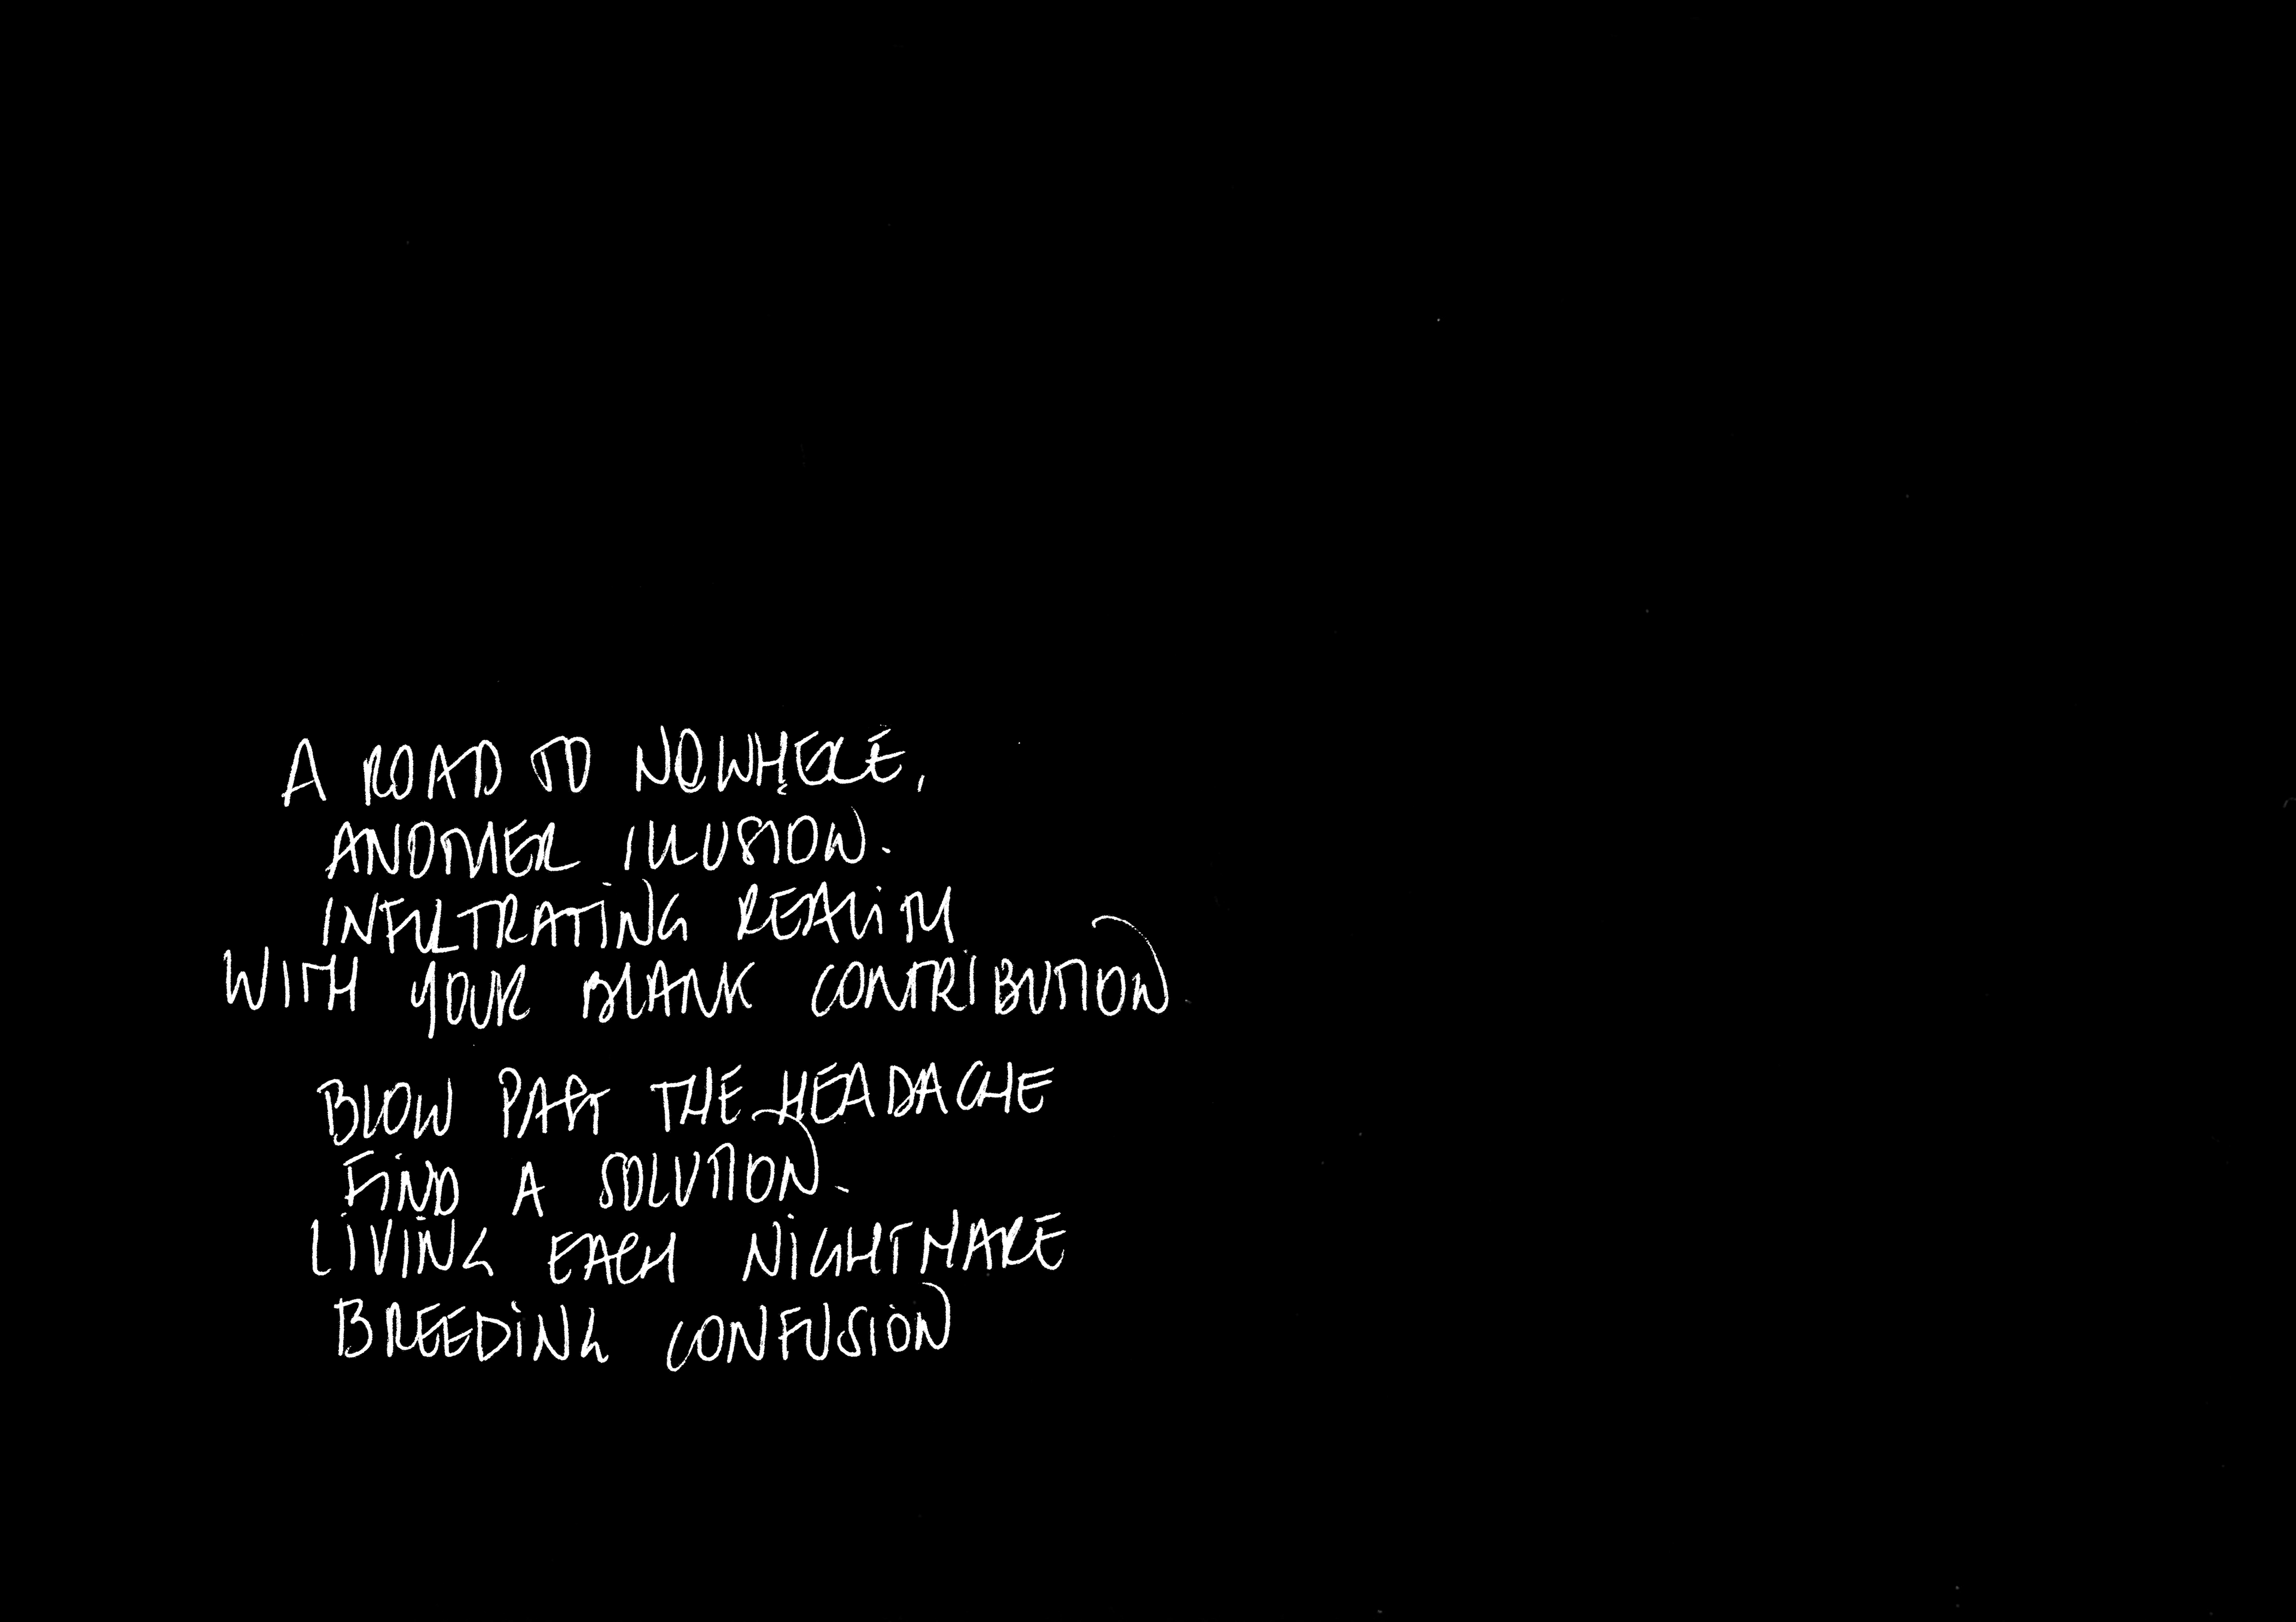 A ROAD TO NOWHERE,
ANOTHER ILLUSION.
INFILTRATING REALITY
WITH YOUR BLANK CONTRIBUTION
BLOW PAST THE HEADACHE
FIND A SOLUTION.
LIVING EACH NIGHTMARE
BREEDING CONFUSION